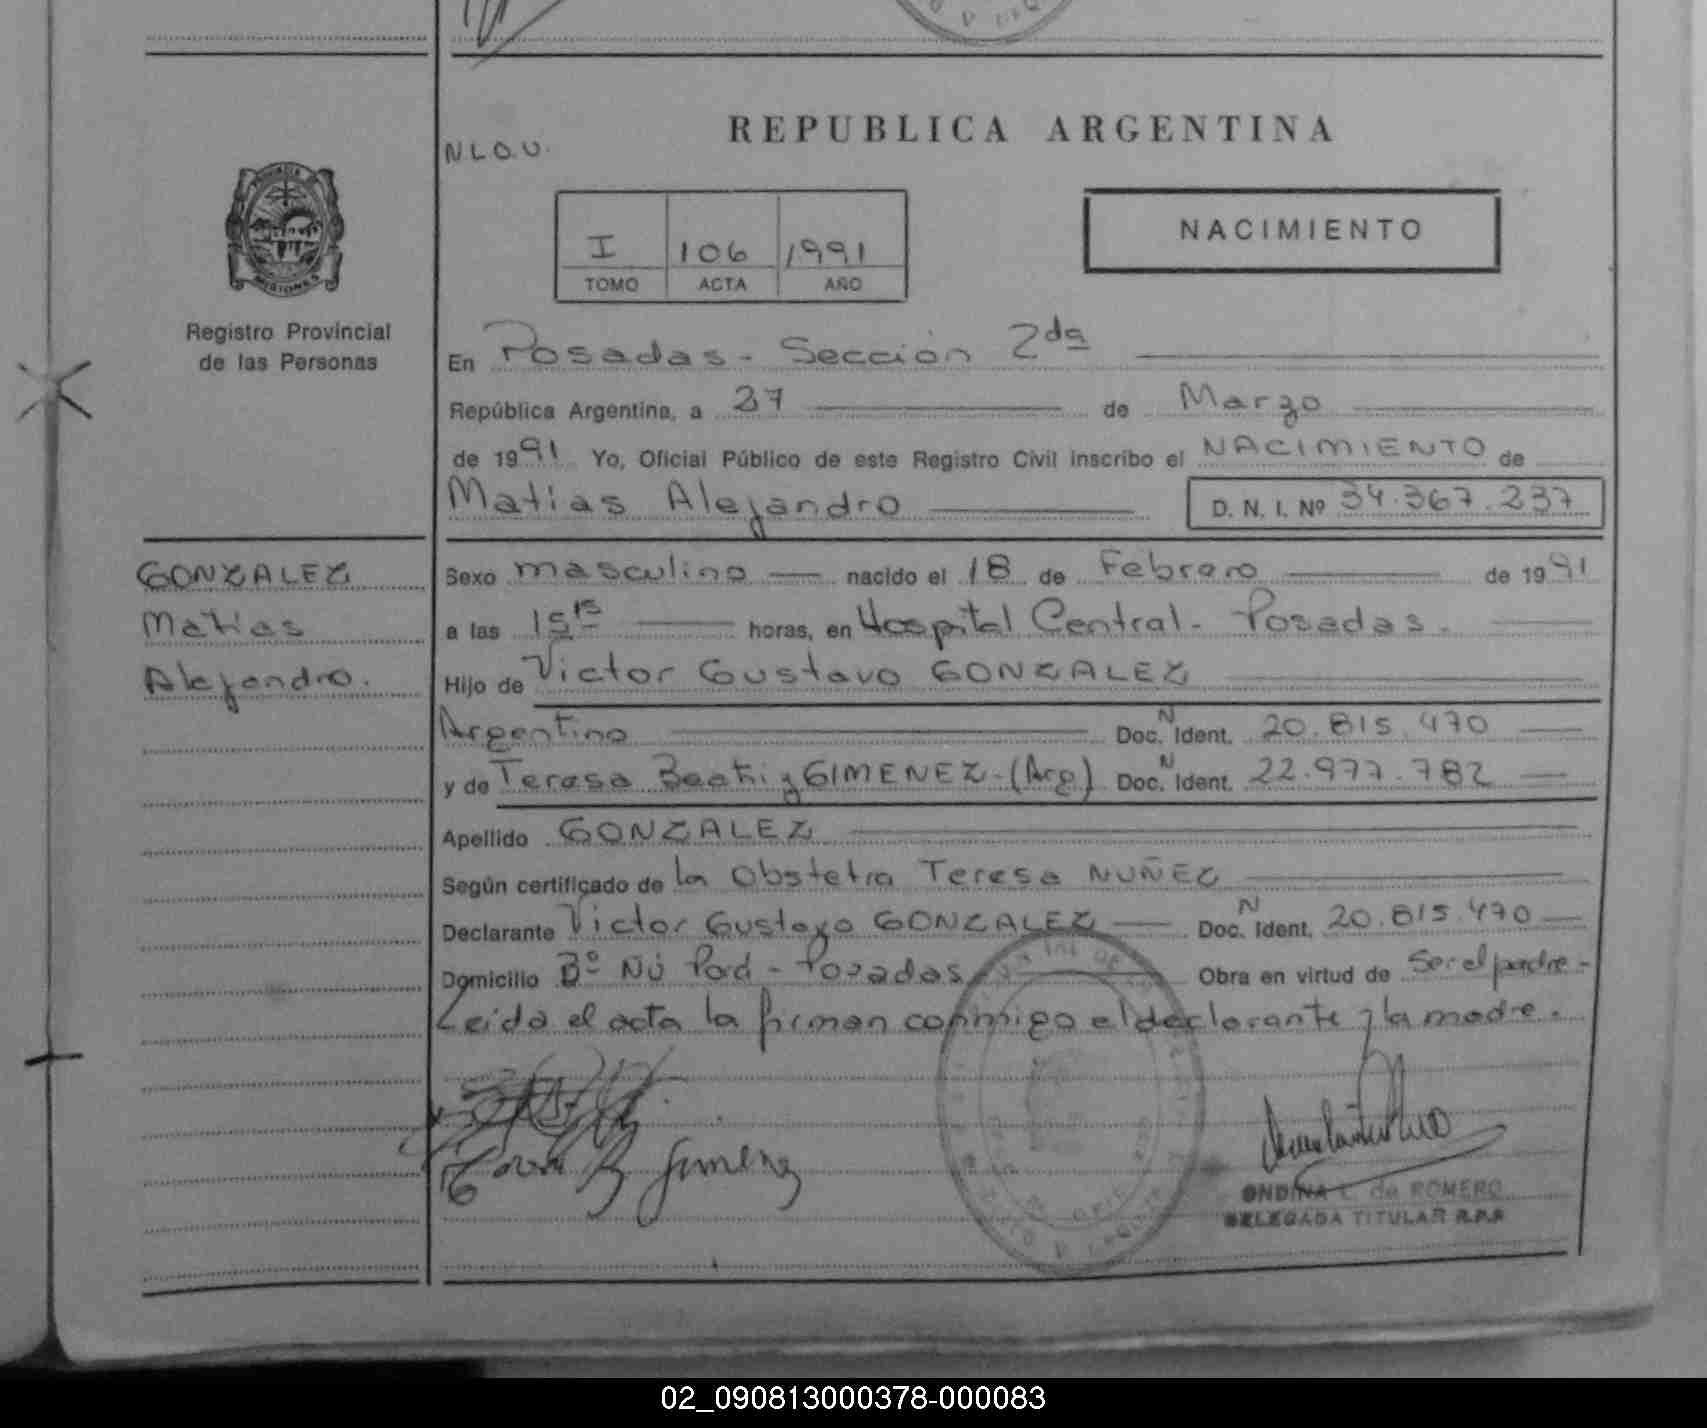 REPUBLICA ARGENTINA
N.L.O.U.
PROVINCIA DE
MISIONES
Registro Provincial
de las Personas
I 106 1991
TOMO ACTA AÑO
NACIMIENTO
En Posadas - Sección 2da
República Argentina, a 27 de Marzo
de 1991 Yo, Oficial Público de este Registro Civil inscribo el NACIMIENTO de
Matias Alejandro D. N. I. Nº 34.367.237
GONZALEZ
Matias
Alejandro.
Sexo masculino nacido el 18 de Febrero de 1991
a las 15 15 horas, en Hospital Central - Posadas.
Hijo de Victor Gustavo GONZALEZ
Argentino Doc. N Ident. 20.815.470
y de Teresa Beatriz GIMENEZ - (Arg) Doc. N Ident. 22.977.782
Apellido GONZALEZ
Según certificado de la Obstetra Teresa NUÑEZ
Declarante Victor Gustavo GONZALEZ Doc. N Ident. 20.815.470
Domicilio Bº Ñú Porá - Posadas Obra en virtud de Ser el padre -
Leida el acta la firman conmigo el declarante y la madre.
Gimenez
ONDINA C. de ROMERO
DELEGADA TITULAR R.P.P.
02_090813000378-000083